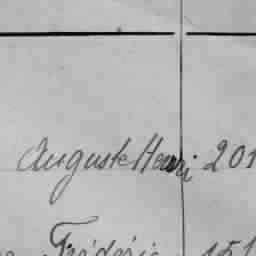 Auguste Henri 201
Frédéric 151